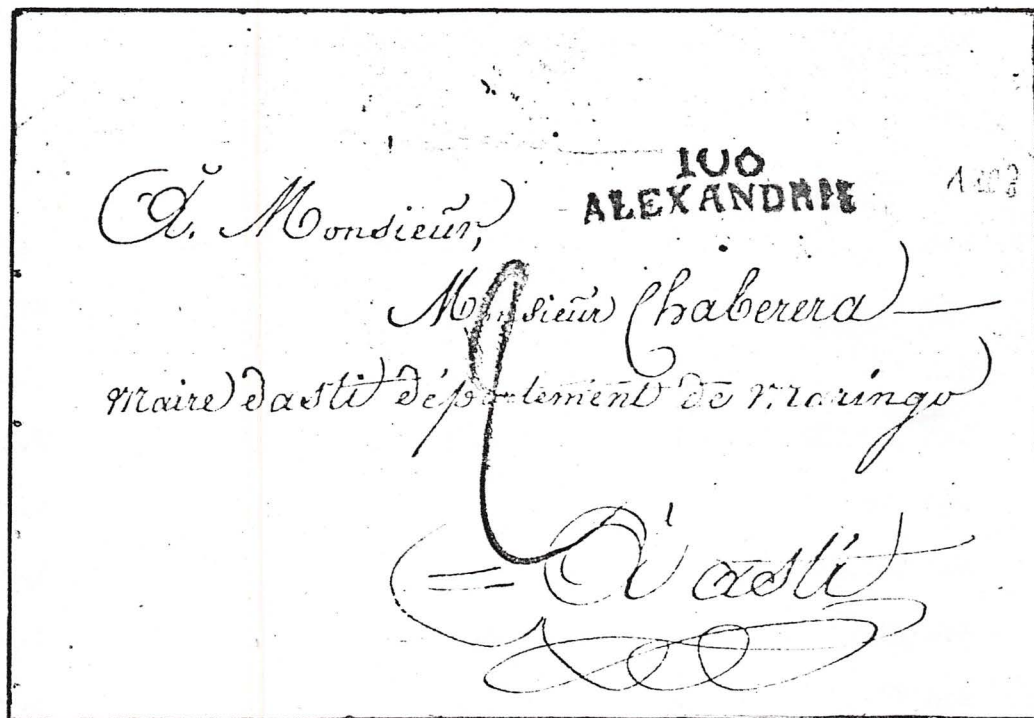 100
ALEXANDRIE
À Monsieur,
Monsieur Chaberera
Maire dasti département de Maringo
À asti